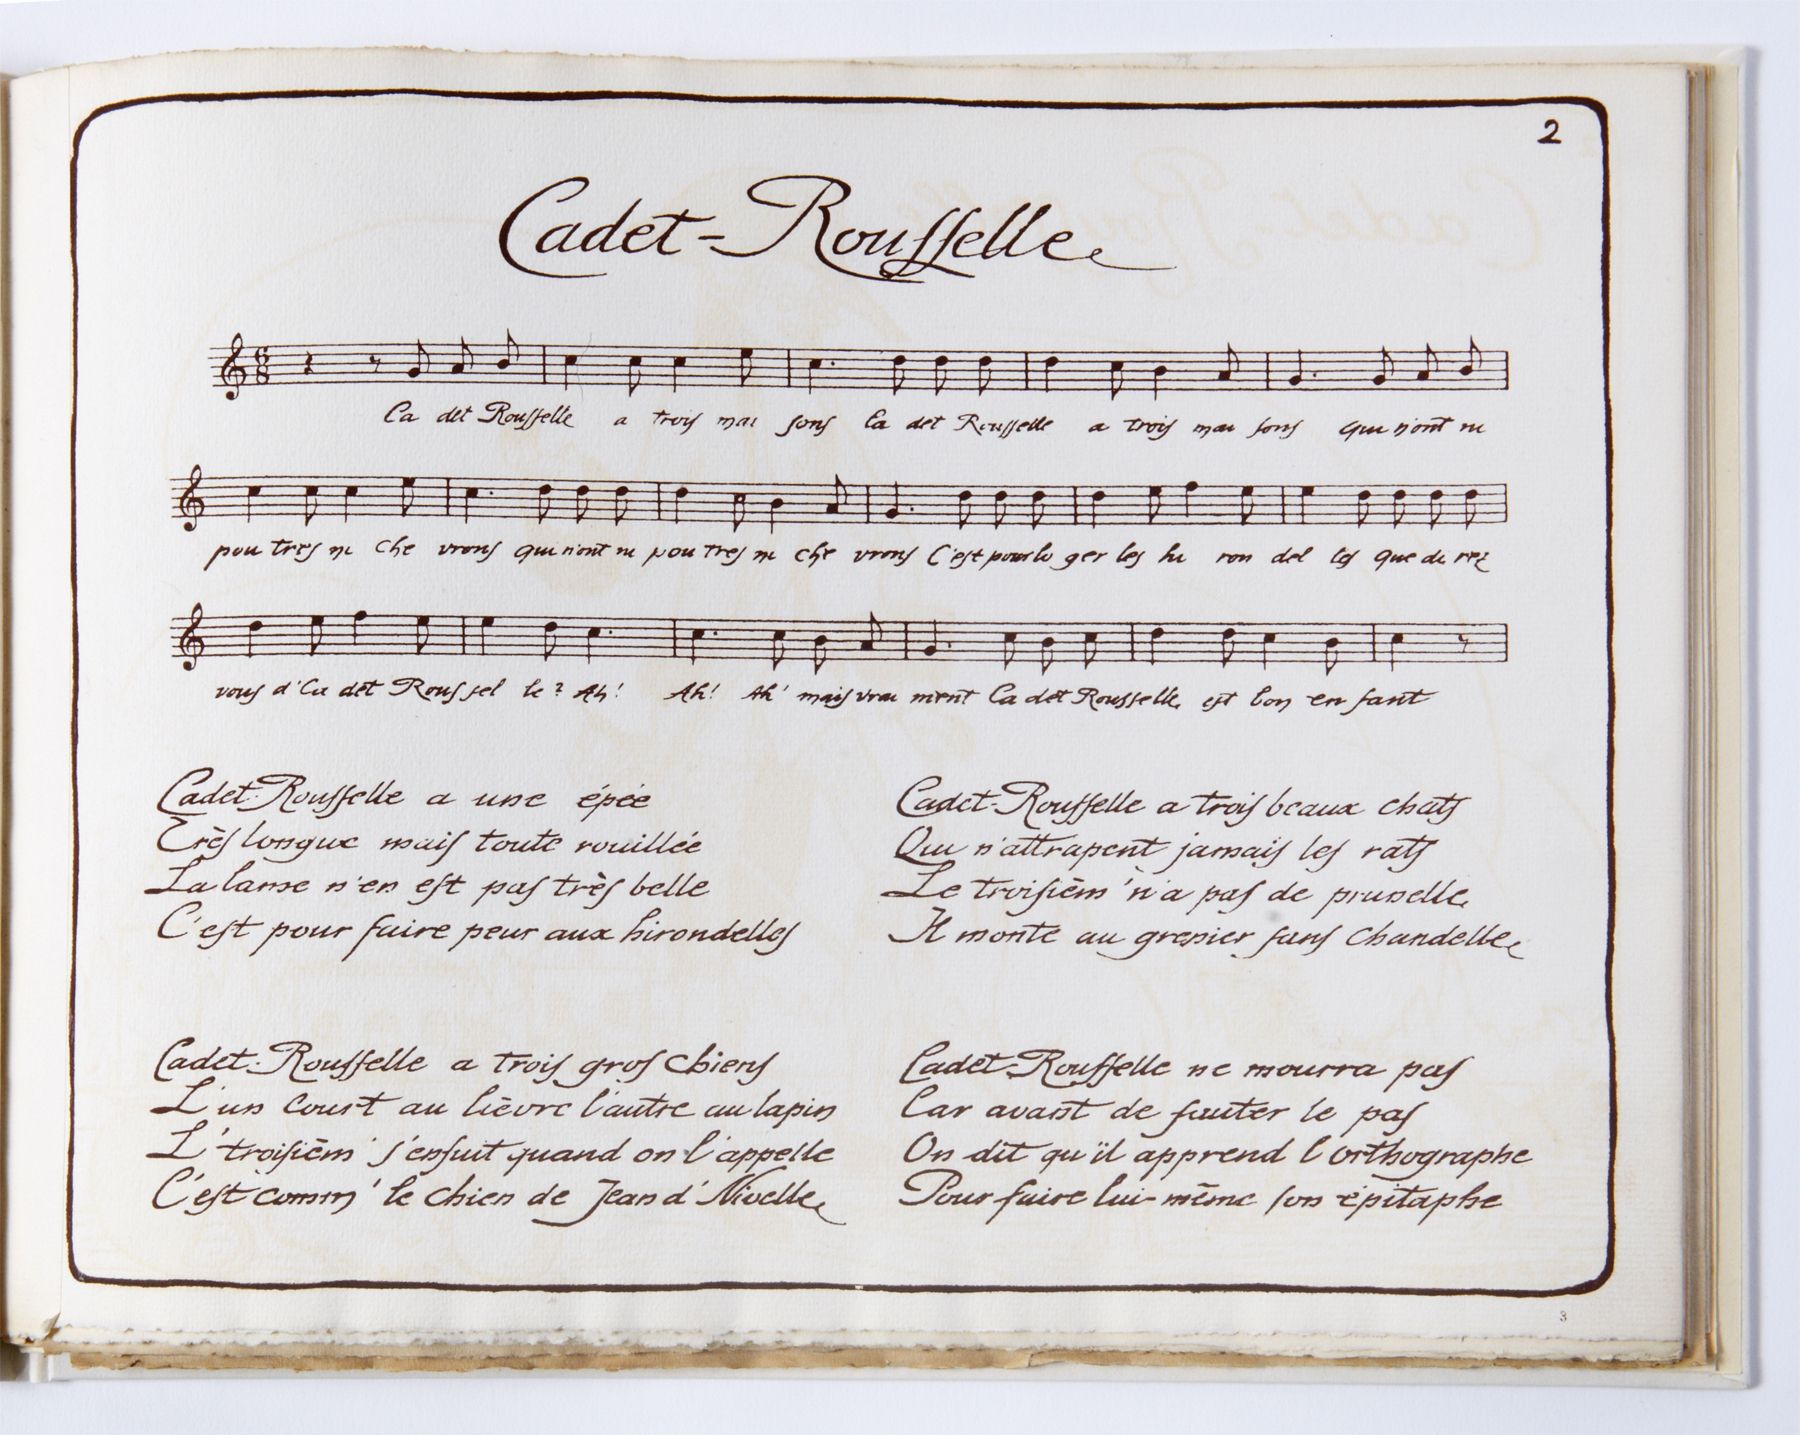 2
Cadet-Rousselle
Ca det Rousselle a trois mai sons Ca det Rousselle a trois mai sons qui n'ont ni
pou tres ni che vrons qui n'ont ni pou tres ni che vrons C'est pour lo ger les hi ron del les que di rez
vous d'Ca det Rous sel le? Ah! Ah! Ah! mais vrai ment Ca det Rousselle est bon en fant
Cadet-Rousselle a une épée
Très longue mais toute rouillée
La lame n'en est pas très belle
C'est pour faire peur aux hirondelles
Cadet-Rousselle a trois gros chiens
L'un court au lièvre l'autre au lapin
L'troisièm' s'enfuit quand on l'appelle
C'est comm' le chien de Jean d'Nivelle
Cadet-Rousselle a trois beaux chats
Qui n'attrapent jamais les rats
Le troisièm' n'a pas de prunelle
Il monte au grenier sans chandelle
Cadet-Rousselle ne mourra pas
Car avant de sauter le pas
On dit qu'il apprend l'orthographe
Pour faire lui-même son épitaphe
3